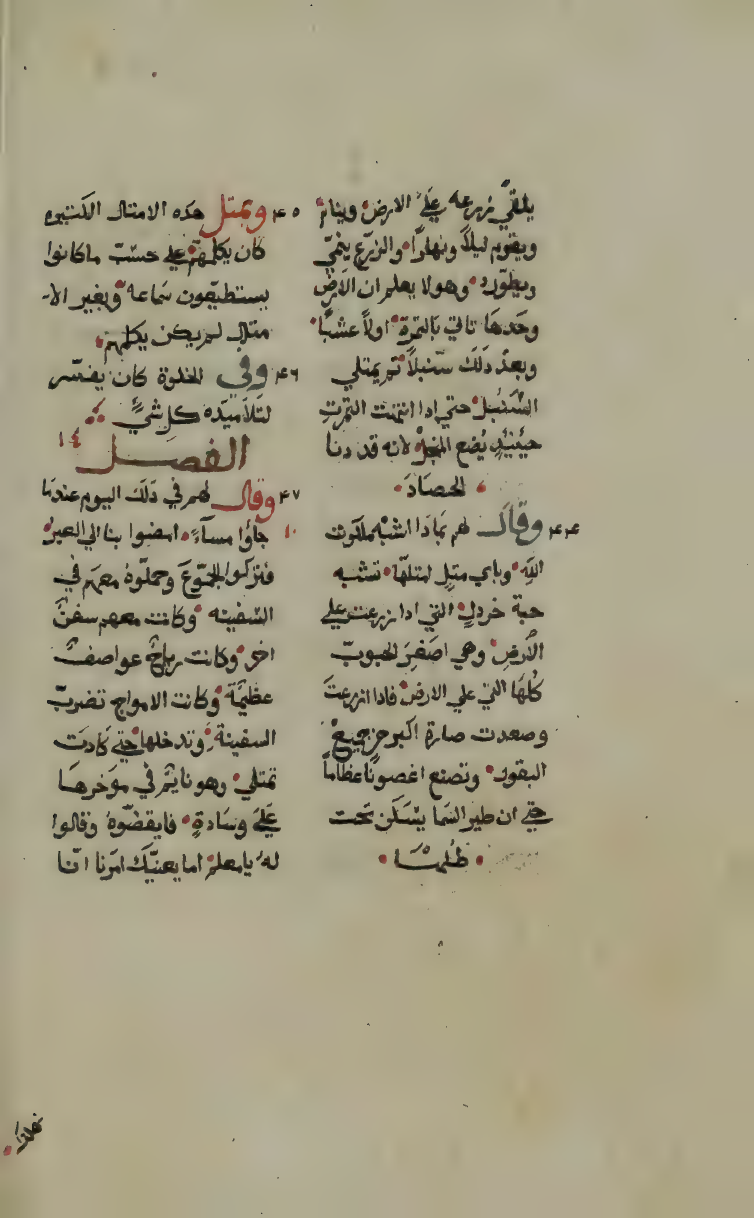 يلقي زرعه علي الارض وينام
ويقوم ليلًا ونهارًا والزرع ينمي
ويطورد وهو لا يعلم ان الارض
وحدها تاتي بالثمرة اولًا عشبًا
وبعد ذلك سنبلًا ثم يمتلي
السنبل حتي ادا انتهت الثمرت
حينيدٍ يضع المنجل لانه قد دنا
الحصاد
٤٤ وقال لهم بمادا اشبه ملكوت
الله وباي مثلٍ امثلها تشبه
حبة خردلٍ التي ادا زرعت علي
الارض وهي اصغر الحبوب
كلها التي علي الارض فادا ازرعت
وصعدت صارة اكبر من جميع
البقول وتصنع اغصونًا عظامًا
حتي ان طير السما يسكن تحت
ظلها
٤٥ وبمثل هده الامثال الكثيره
كان يكلمهم علي حسب ما كانوا
يستطيعون سماعه وبغير الا-
مثال لم يكن يكلمهم
٤٦ وفي الخلوة كان يفسر
لتلاميده كل شيً
الفصل ١٤
٤٧ وقال لهم في دلك اليوم عندما
١٠ جاؤا مساءً امضوا بنا الي العبر
فتركوا الجموع وحملوه معهم في
السفينه وكانت معهم سفن
اخر وكانت رياح عواصف
عظيمة وكانت الامواج تضرب
السفينة وتدخلها حتي كادت
تمتلي وهو نايم في موخرها
علي وسادةٍ فايقضوه وقالوا
له يا معلم اما يعنيك امرنا اننا
نهلك